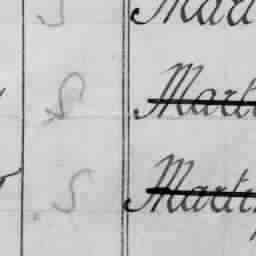 S Mart
S Mart
S Marti